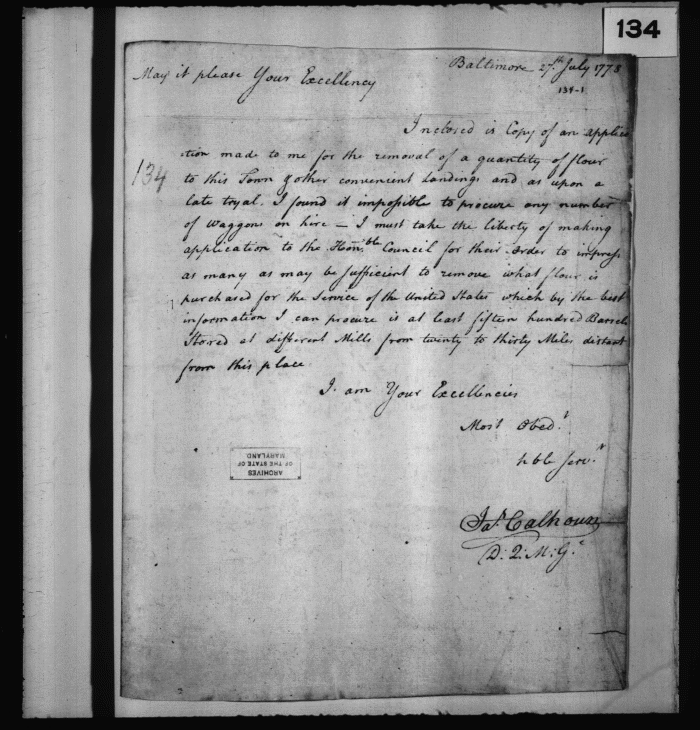 134
Baltimore 27th July 1778
134-1
May it please Your Excellency
Inclosed is Copy of an applica
ation made to me for the removal of a quantity of flour
134
to this Town & other convenient Landings and as upon a
late tryal. I found it impossible to procure any number
of Waggons on hire — I must take the liberty of making
application to the Honble Council for their order to impress
as many as may be sufficient to remove what flour is
purchased for the Service of the United States which by the best
information I can procure is at least fifteen hundred Barrels
Stored at different Mills from twenty to thirty Miles distant
from this place
I am Your Excellencies
Most Obedt
hble Servt
Jas Calhoun
D: Q: M: G:
ARCHIVES
OF THE STATE OF
MARYLAND